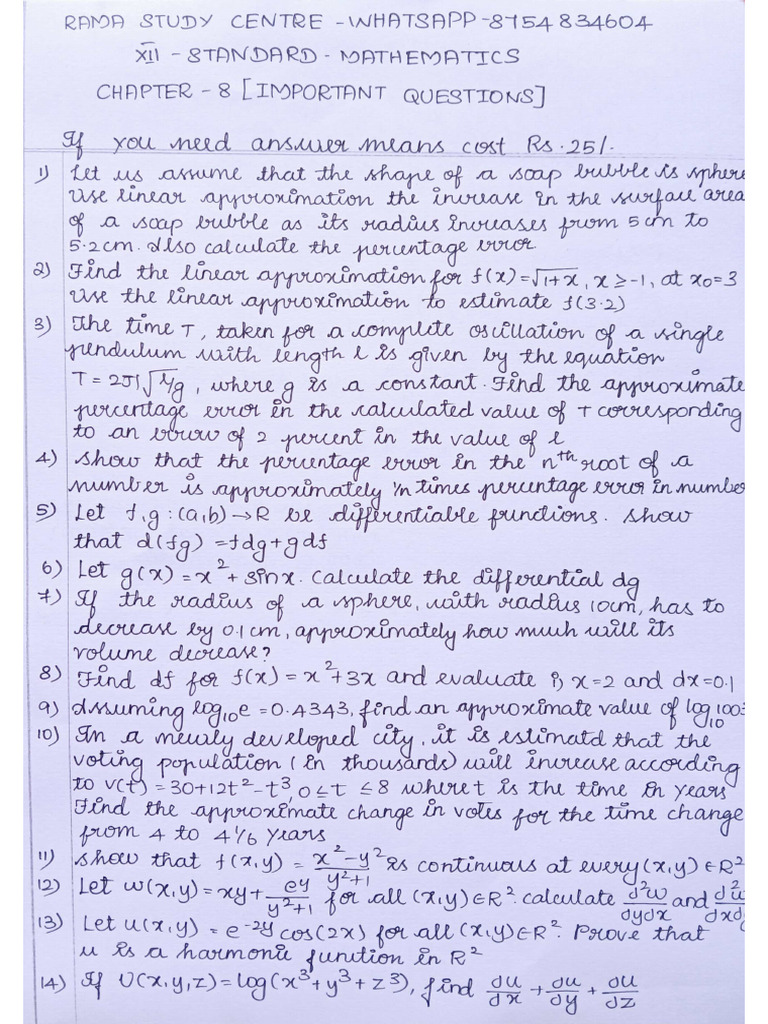 RAMA STUDY CENTRE -WHATSAPP-8754834604
XII - STANDARD - MATHEMATICS
CHAPTER - 8 [IMPORTANT QUESTIONS]
If you need answer means cost Rs.25/.
1) Let us assume that the shape of a soap bubble is sphere
Use linear approximation the increase in the surface area
of a soap bubble as its radius increases from 5cm to
5.2cm. Also calculate the percentage error
2) Find the linear approximation for f(x)=√1+x, x≥-1, at x₀=3
Use the linear approximation to estimate f(3.2)
3) The time T, taken for a complete oscillation of a single
pendulum with length l is given by the equation
T=2π√l/g, where g is a constant. Find the approximate
percentage error in the calculated value of T corresponding
to an error of 2 percent in the value of l
4) Show that the percentage error in the nth root of a
number is approximately 1/n times percentage error in number
5) Let f,g:(a,b)→R be differentiable functions. Show
that d(fg)=fdg+gdf
6) Let g(x)=x²+sinx. Calculate the differential dg
7) If the radius of a sphere, with radius 10cm, has to
decrease by 0.1cm, approximately how much will its
volume decrease?
8) Find df for f(x)=x²+3x and evaluate i) x=2 and dx=0.1
9) Assuming log₁₀e=0.4343, find an approximate value of log₁₀1003
10) In a newly developed city, it is estimatd that the
voting population (in thousands) will increase according
to V(t)=30+12t²-t³ 0≤t≤8 where t is the time in years
Find the approximate change in votes for the time change
from 4 to 4 1/6 years
11) Show that f(x,y)=x²-y²/y²+1 is continuous at every (x,y)∈R²
12) Let w(x,y)=xy+ey/y²+1 for all (x,y)∈R². calculate d²w/dydx and d²w/dxdy
13) Let u(x,y)=e⁻²ʸcos(2x) for all (x,y)∈R². Prove that
u is a harmonic function in R²
14) If U(x,y,z)=log(x³+y³+z3), find du/dx+du/dy+du/dz